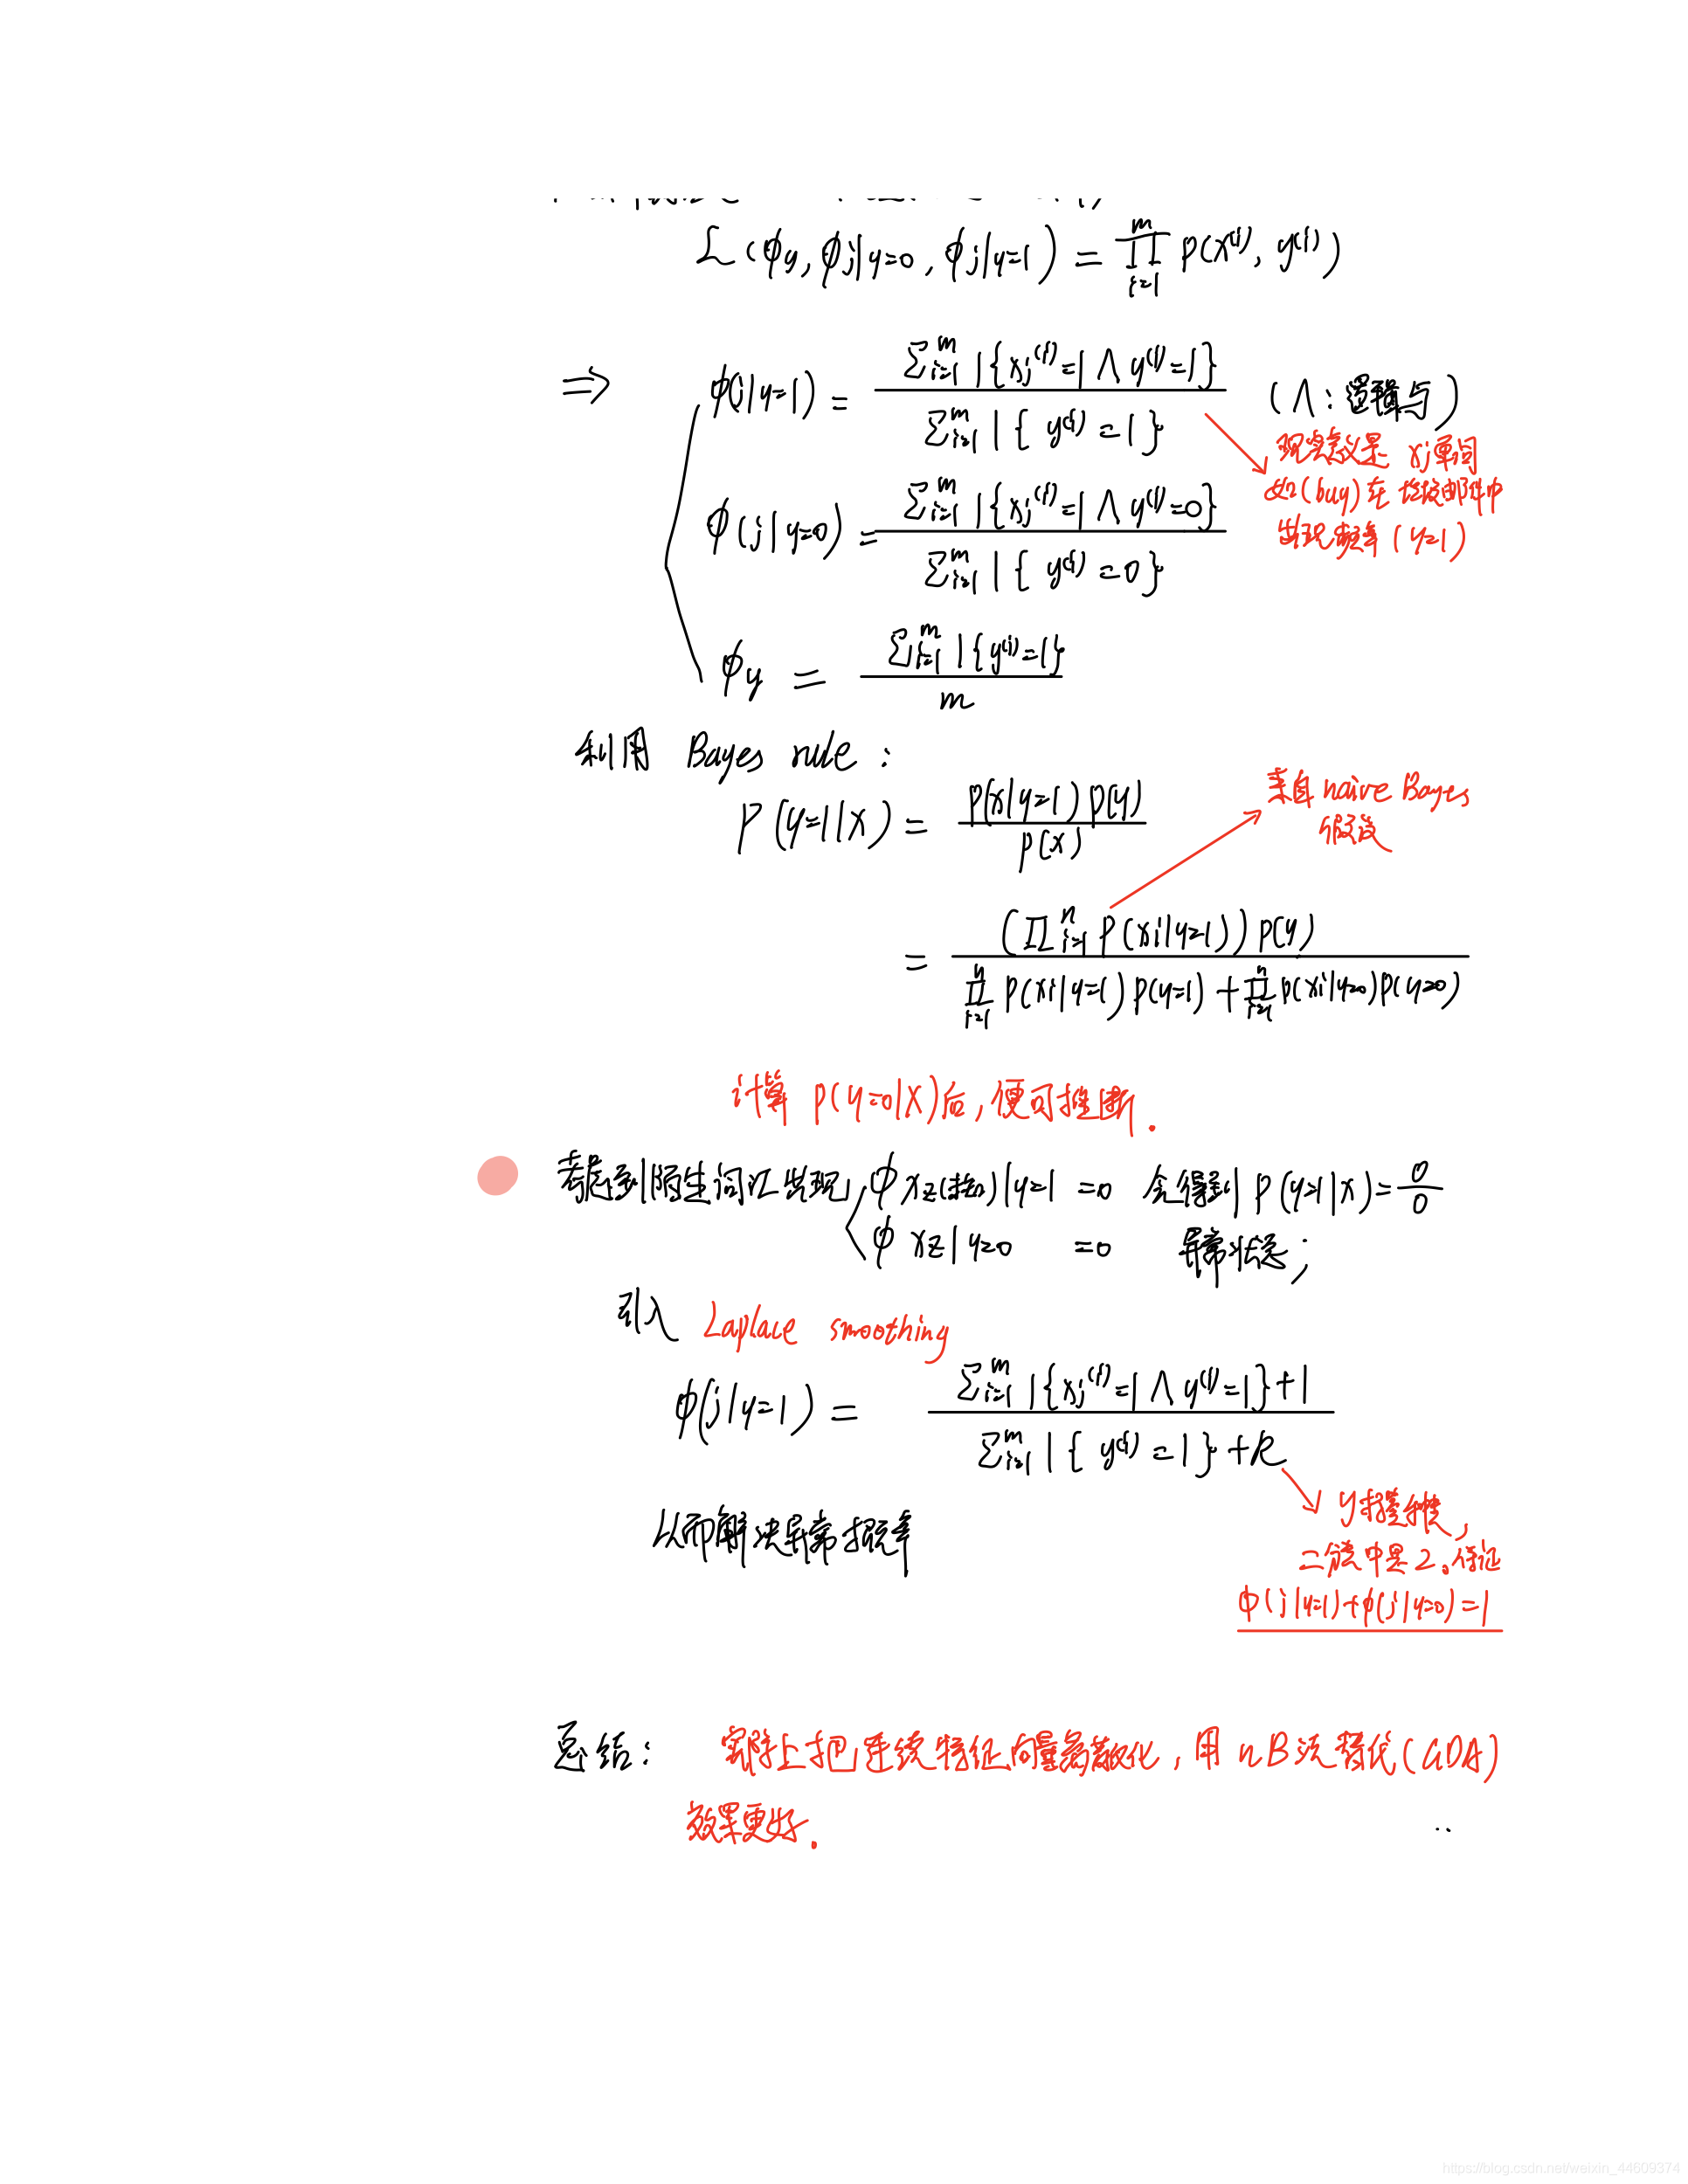 L(ϕy, ϕj|y=0, ϕj|y=1) = ∏_{i=1}^{m} p(x^{(i)}, y^{(i)})
⇒ ϕ(j|y=1) = \frac{∑_{i=1}^{m} 1{xj^{(i)}=1 ∧ y^{(i)}=1}}{∑_{i=1}^{m} 1{y^{(i)}=1}} (∧: 逻辑与)
现实意义是 xj单词
如(buy)在垃圾邮件中
出现频率(y=1)
ϕ(j|y=0) = \frac{∑_{i=1}^{m} 1{xj^{(i)}=1 ∧ y^{(i)}=0}}{∑_{i=1}^{m} 1{y^{(i)}=0}}
ϕy = \frac{∑_{i=1}^{m} 1{y^{(i)}=1}}{m}
利用 Bayes rule:
P(y=1|x) = \frac{p(x|y=1)p(y)}{p(x)}
来自naive Bayes
假设
= \frac{(∏_{i=1}^{n} p(xi|y=1))p(y)}{∏_{i=1}^{n} p(xi|y=1)p(y=1)+∏_{i=1}^{n} p(xi|y=0)p(y=0)}
计算 p(y=0|x)后,便可推断.
考虑到陌生词汇出现 ϕxz(未知)|y=1 =0 会得到 p(y=1|x)=\frac{0}{0}
ϕxz|y=0 =0 异常状态;
引入 Laplace smoothing
ϕ(j|y=1) = \frac{∑_{i=1}^{m} 1{xj^{(i)}=1 ∧ y^{(i)}=1}+1}{∑_{i=1}^{m} 1{y^{(i)}=1}+k}
y类种,
二分类中是2。保证
ϕ(j|y=1)+ϕ(j|y=0)=1
从而解决异常概率
总结: 实际上把连续特征向量离散化,用nB法替代(GDA)
效果更好.
https://blog.csdn.net/weixin_44609374